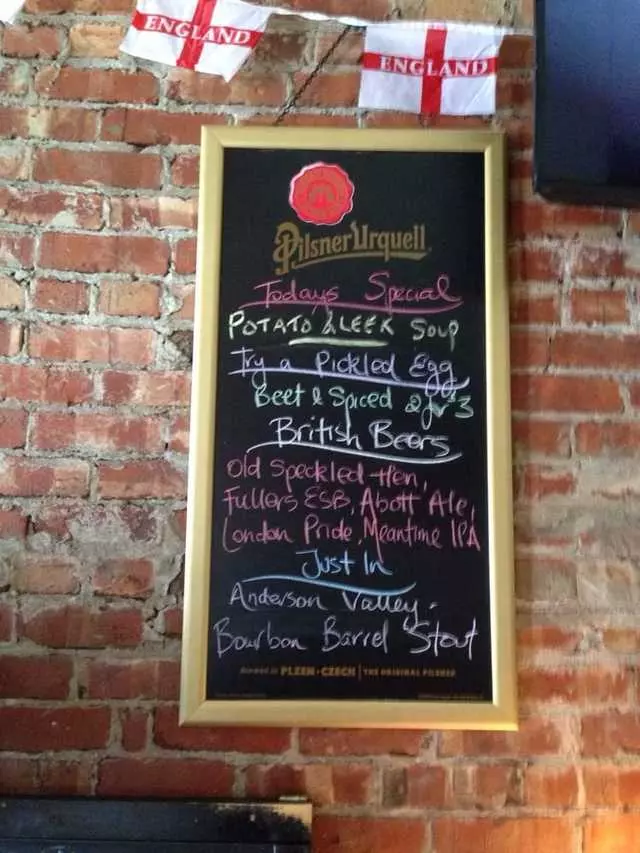 ENGLAND
ENGLAND
Pilsner Urquell
Todays Special
POTATO & LEEK SOUP
Try a Pickled Egg
Beet & Spiced 2 for 3
British Beers
Old Speckled Hen,
Fullers ESB, Abott Ale,
London Pride, Meantime IPA
Just In
Anderson Valley -
Bourbon Barrel Stout
PLZEN • CZECH | THE ORIGINAL PILSNER